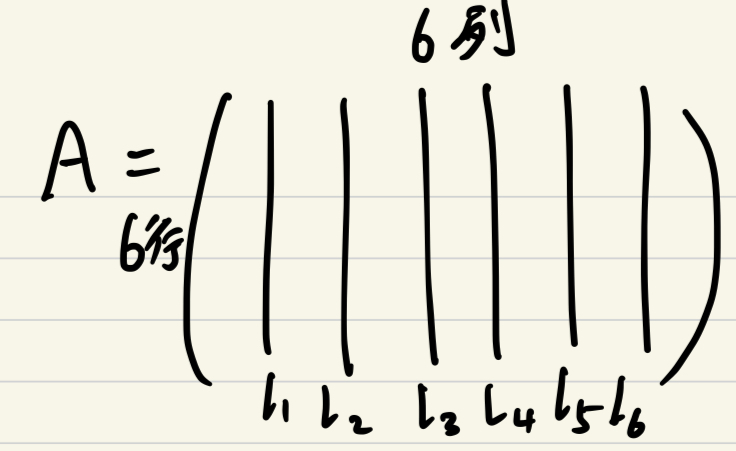 6列
A =
6行
l1 l2 l3 l4 l5 l6